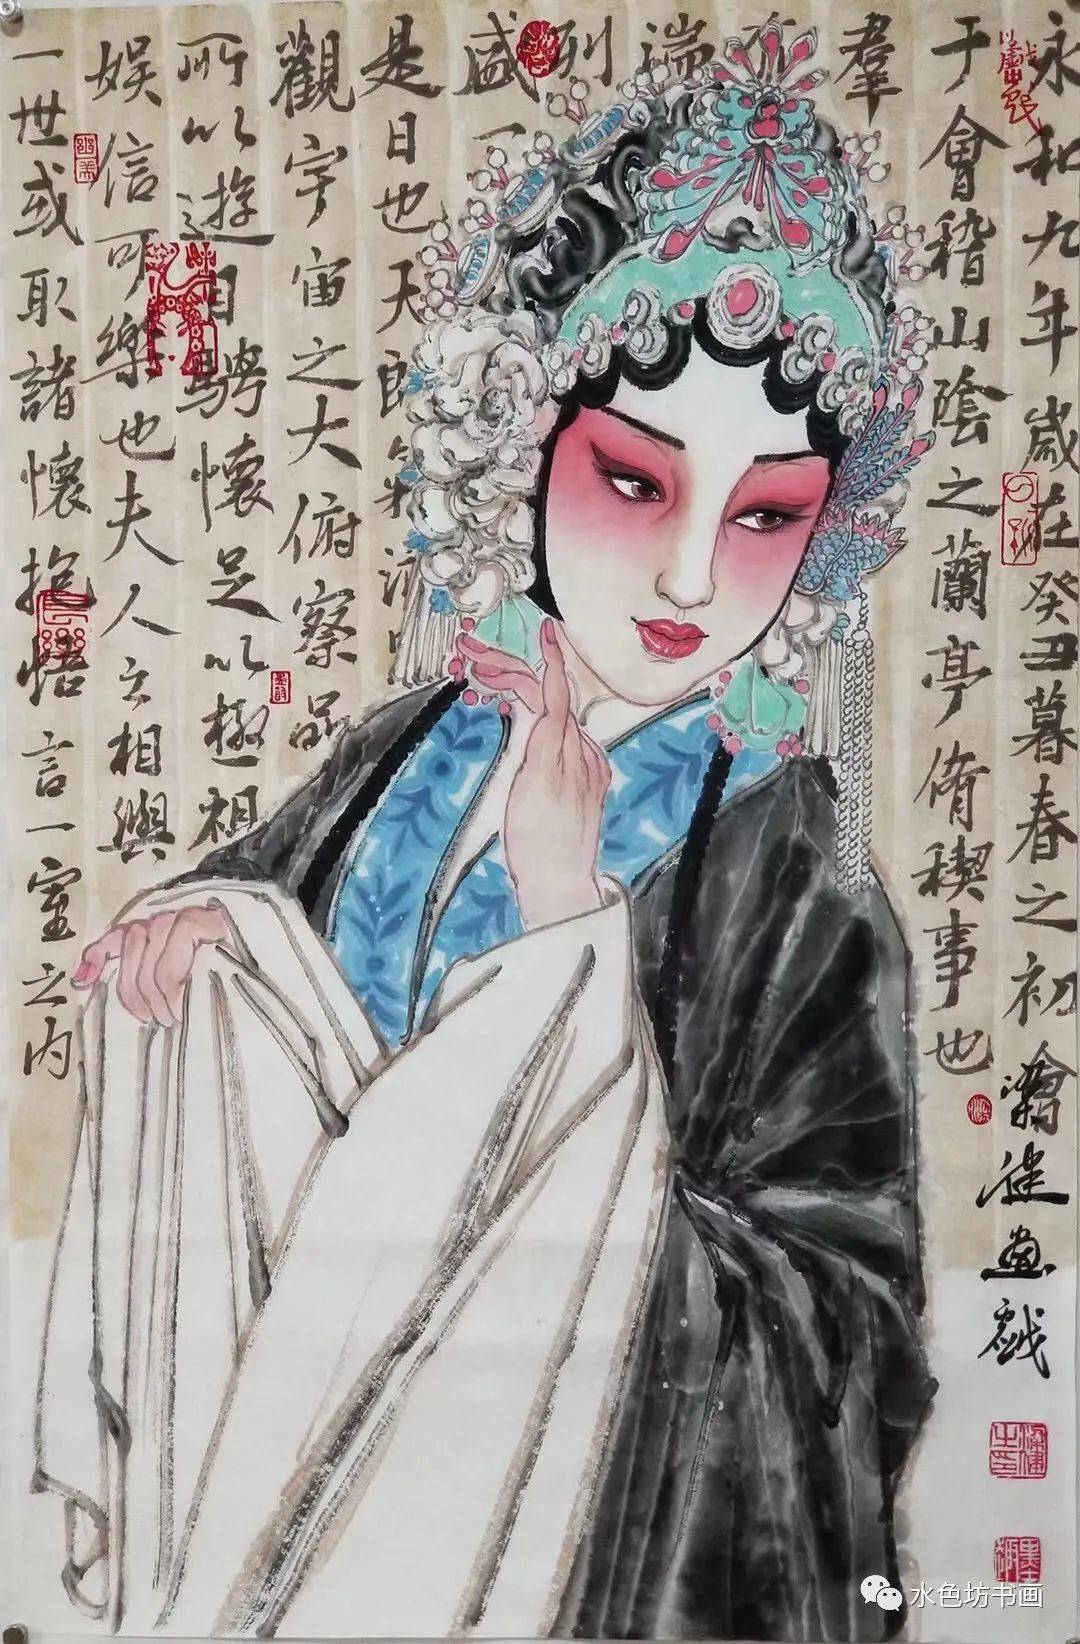 永和九年歲在癸丑暮春之初會
于會稽山陰之蘭亭脩稧事也
羣
湍
列
盛一
是日也天朗
觀宇宙之大俯察品
所以遊目騁懷足以極
娛信可樂也夫人之相與
一世或取諸懷抱悟言一室之内
水色坊书画